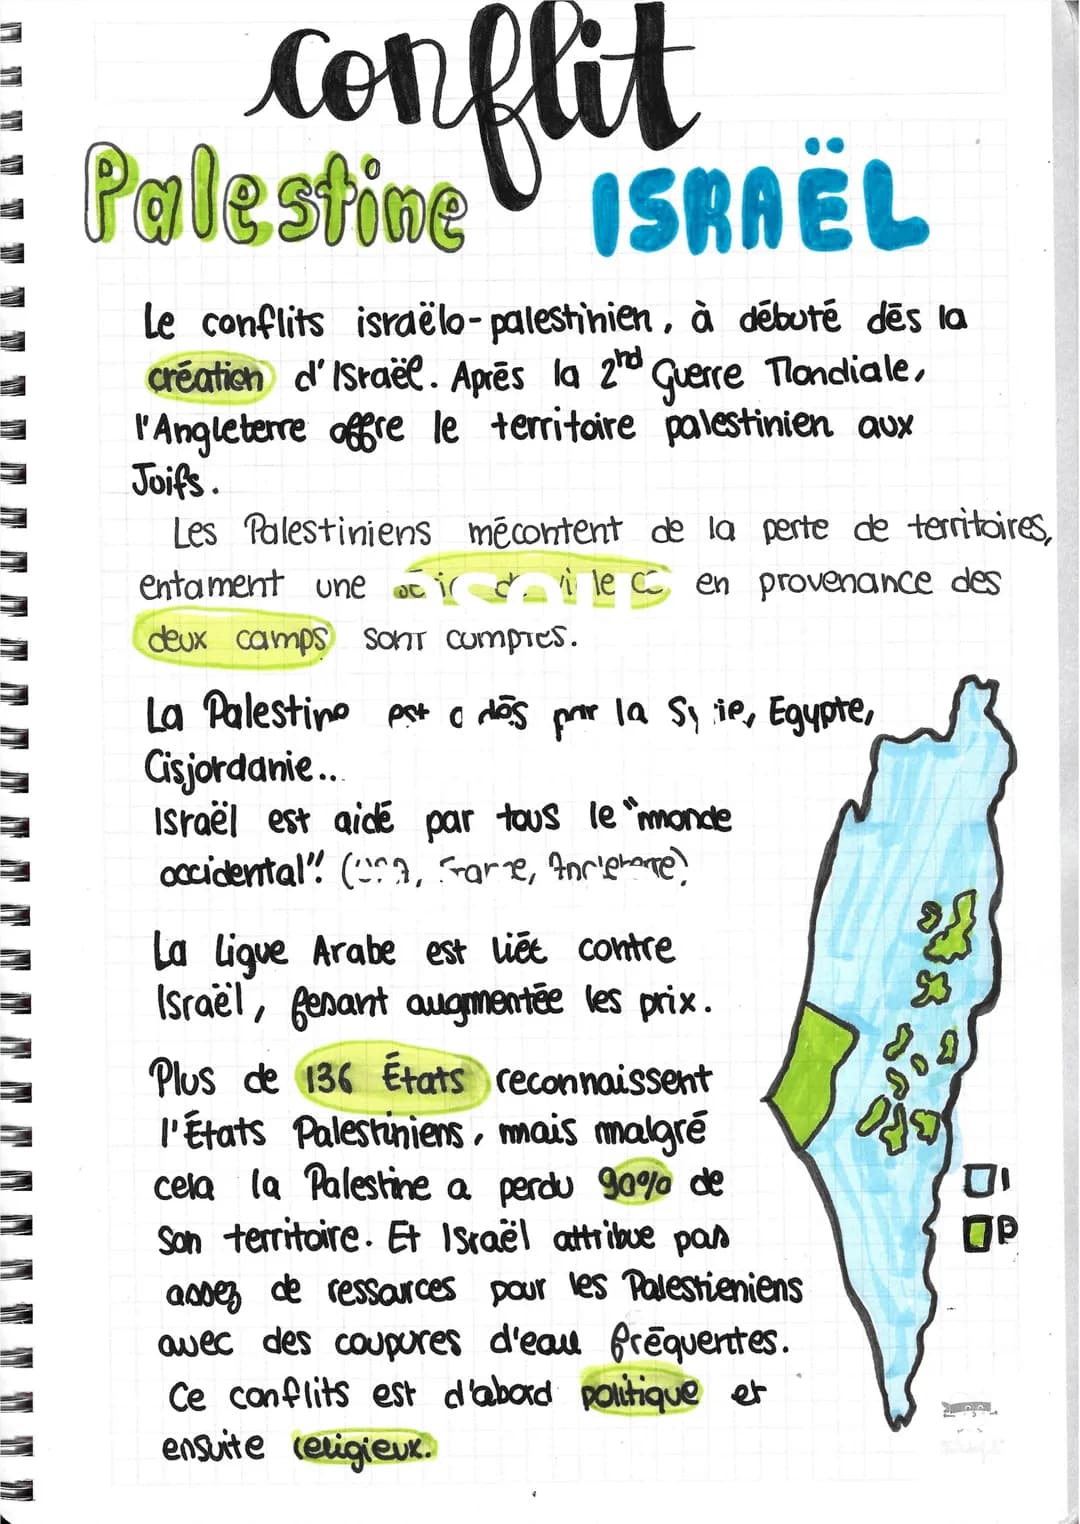 conflit
Palestine ISRAËL
Le conflits israëlo-palestinien, à débuté dès la
création d'Israël. Après la 2nd Guerre Mondiale,
l'Angleterre offre le territoire palestinien aux
Joifs.
Les Palestiniens mécontent de la perte de territoires,
entament une en provenance des
deux camps sont comptes.
La Palestine est par la Syrie, Egypte,
Cisjordanie...
Israël est aidé par tous le "monde
occidental". (USA, France, Angleterre)
La Ligue Arabe est liée contre
Israël, fesant augmentée les prix.
Plus de 136 États reconnaissent
l'États Palestiniens, mais malgré
cela la Palestine a perdu 90% de
son territoire. Et Israël attribue pas
assez de ressources pour les Palestieniens
avec des coupures d'eau fréquentes.
Ce conflits est d'abord politique et
ensuite religieux.
I
P